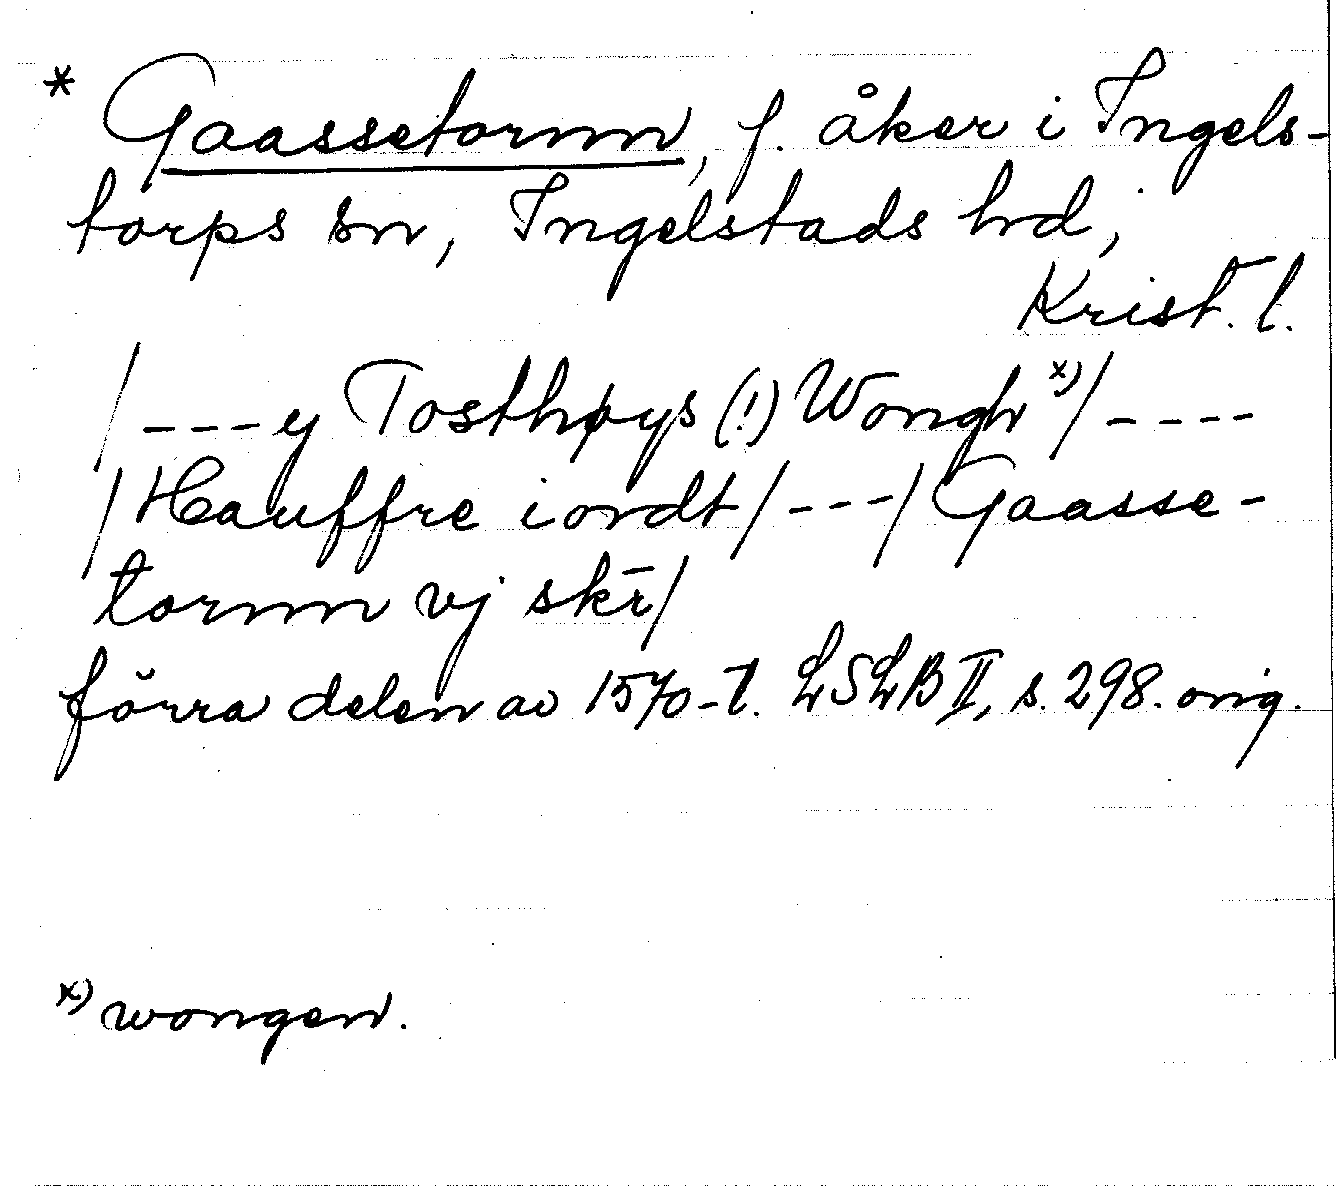 * Gaassetornn, f. åker i Ingels-
torps sn, Ingelstads hd,
Krist. l.
/---y Tosthøys (!) Wongh x)/----
/Hauffre iordt/---/Gaasse-
tornn vj skr̄/
förra delen av 1570-t. LSLB II, s. 298. orig.
x) wongen.